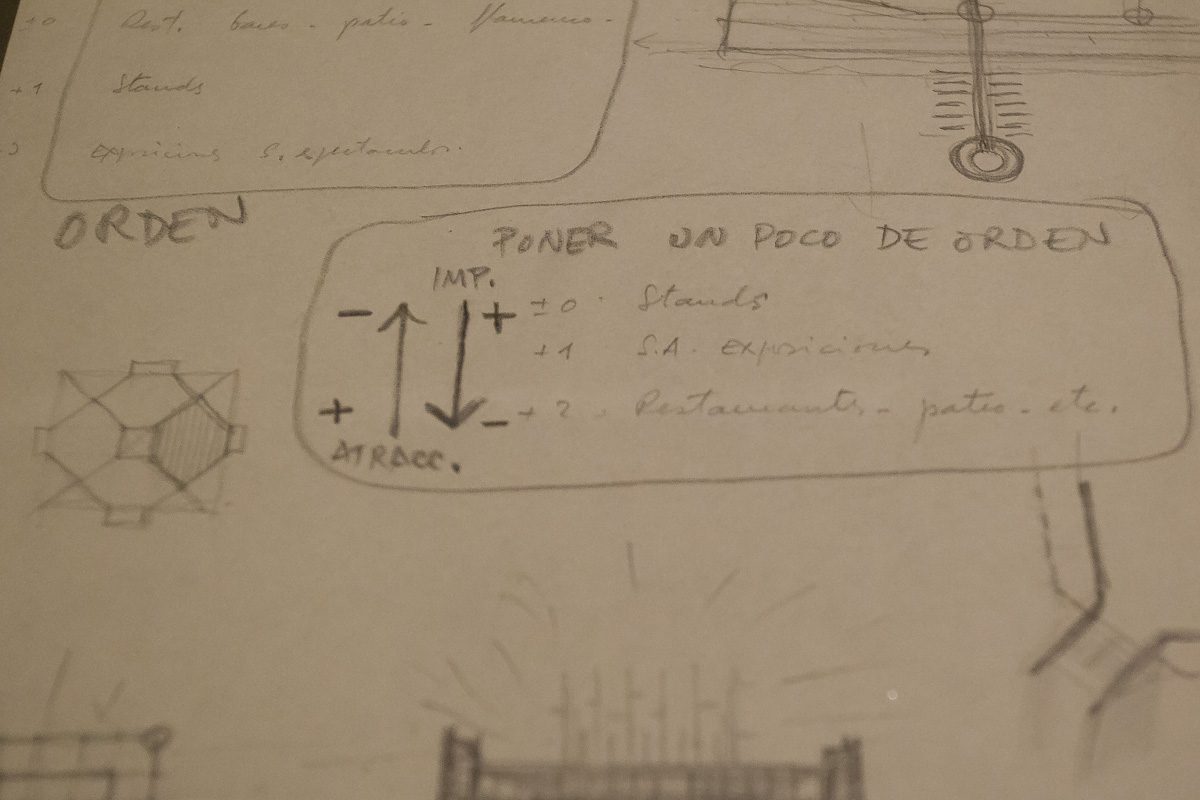 ±0 Rest. bares - patio - flamenco.
+1 Stands
exposicions S. espectaculos.
ORDEN
PONER UN POCO DE ORDEN
IMP.
- + ±0 · Stands
+1 S.A. exposiciones
+ - + 2 . Restaurants - patio - etc.
ATRACC.